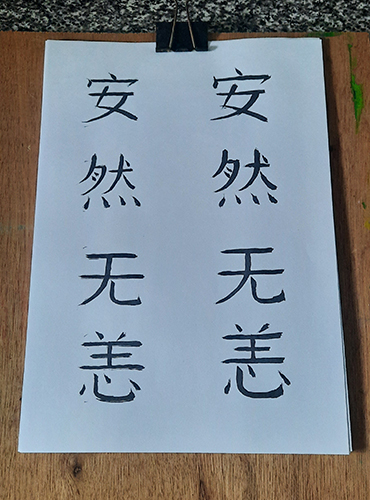 安然无恙
安然无恙